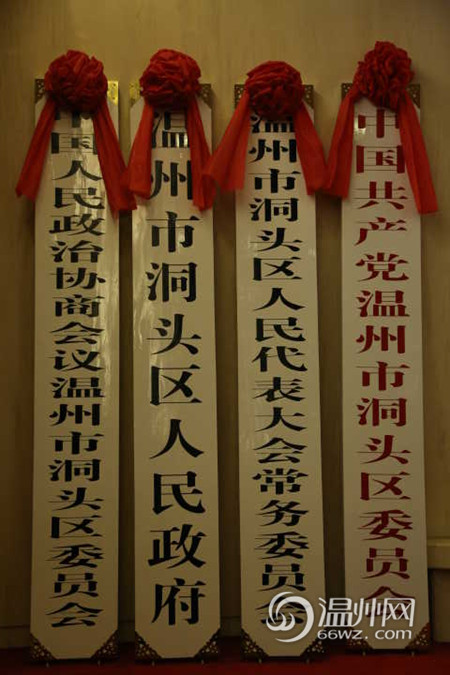 中国人民政治协商会议温州市洞头区委员会
温州市洞头区人民政府
温州市洞头区人民代表大会常务委员会
中国共产党温州市洞头区委员会
温州网
66WZ.COM